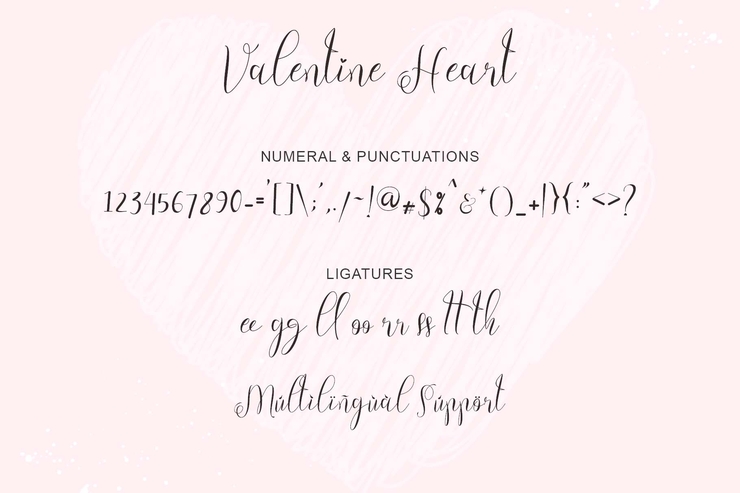 Valentine Heart
NUMERAL & PUNCTUATIONS
1234567890-='[]\;',./~!@#$%^&*()_+|}{:"<>?
LIGATURES
ee gg ll oo rr ss tt th
Múltìlïñgùàl Súppört